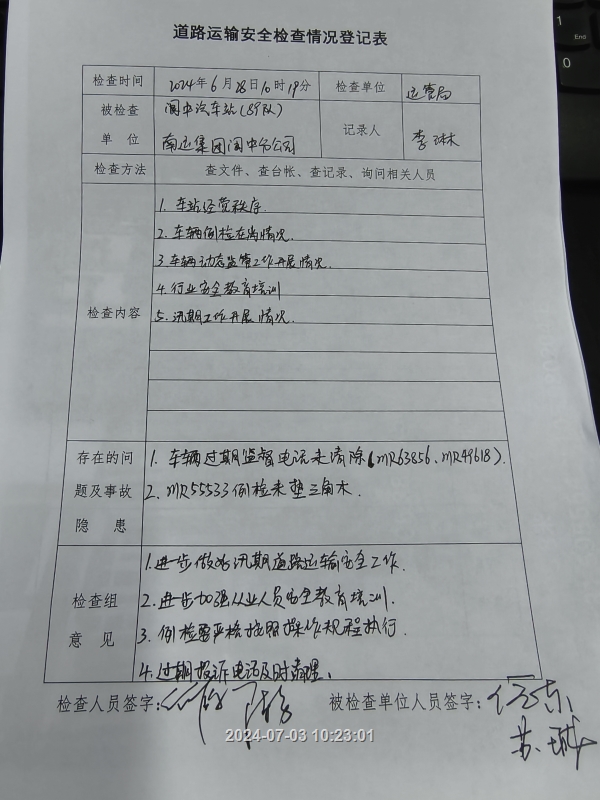 道路运输安全检查情况登记表
检查时间 2024年6月28日10时19分 检查单位 运管局
被检查 阆中汽车站(89队)
单位 南运集团阆中分公司 记录人 李琳
检查方法 查文件、查台帐、查记录、询问相关人员
检查内容
1. 车站经营秩序
2. 车辆例检在岗情况.
3. 车辆动态监管工作开展情况.
4. 行业安全教育培训
5. 汛期工作开展情况.
存在的问
题及事故
隐患
1. 车辆过期监督电话未清除(MR63856、MR49618).
2. MR55533例检未垫三角木.
检查组
意见
1.进步做好汛期道路运输安全工作.
2. 进步加强从业人员安全教育培训.
3. 例检要严格按照操作规程执行.
4. 过期投诉电话及时清理.
检查人员签字: 被检查单位人员签字:
End
0
2024-07-03 10:23:01